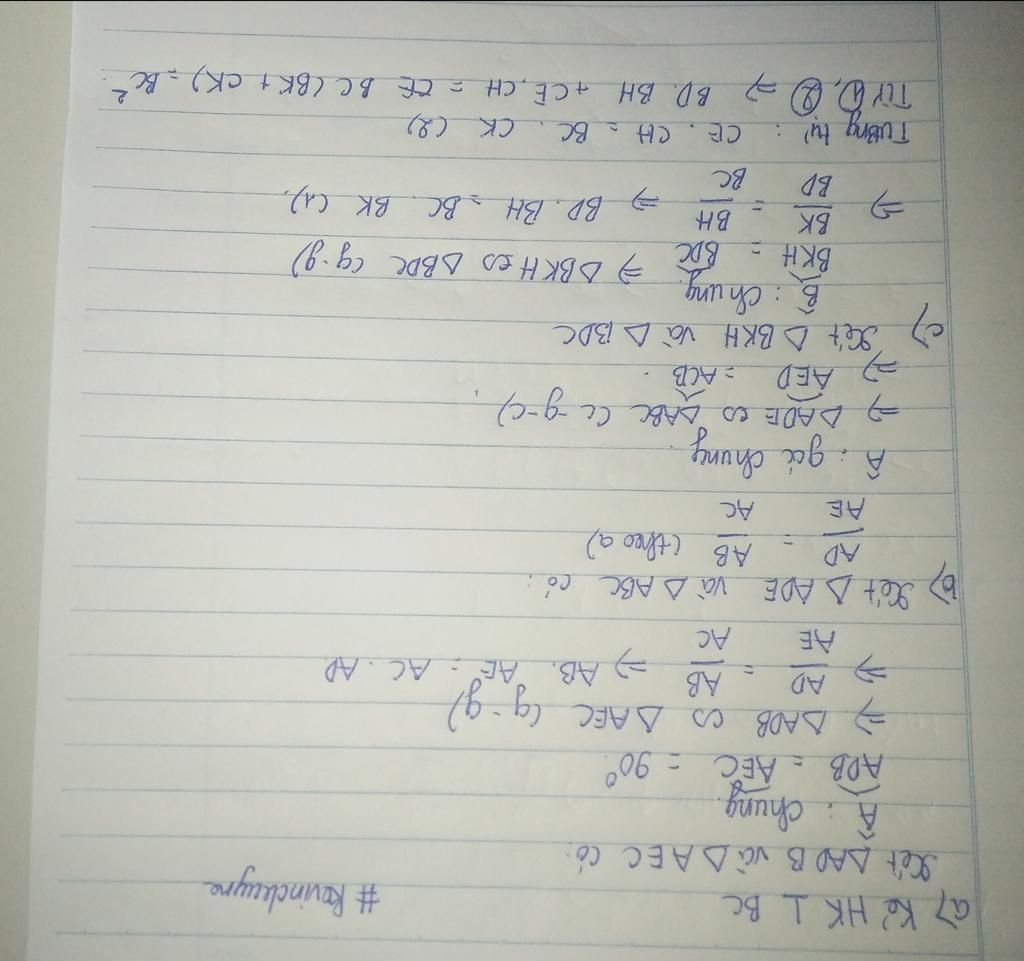 a) Kẻ HK ⊥ BC
Xét △ADB và △AEC có:
Â : chung
ADB = AEC = 90°
⇒ △ADB ∽ △AEC (g-g)
⇒ AD/AE = AB/AC ⇒ AB. AE = AC. AD
b) Xét △ADE và △ABC có:
AD/AE = AB/AC (theo a)
Â : góc chung
⇒ △ADE ∽ △ABC (c-g-c)
⇒ AED = ACB.
c) Xét △BKH và △BDC
B̂ : chung
BKH = BDC ⇒ △BKH ∽ △BDC (g-g)
⇒ BK/BD = BH/BC ⇒ BD. BH = BC. BK (1).
Tương tự : CE. CH = BC. CK (2)
Từ ①, ② ⇒ BD. BH + CE. CH = CE BC (BK + CK) = BC².